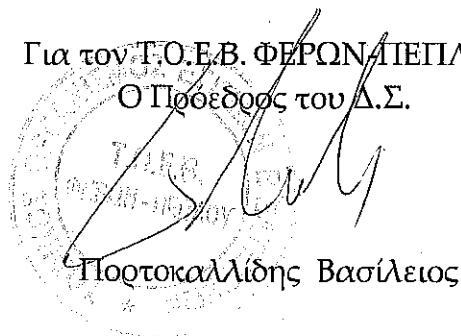 Για τον Τ.Ο.Ε.Β. ΦΕΡΩΝ-ΠΕΠΛ
Ο Πρόεδρος του Δ.Σ.
Τ.Ο.Ε.Β.
Πορτοκαλλίδης Βασίλειος